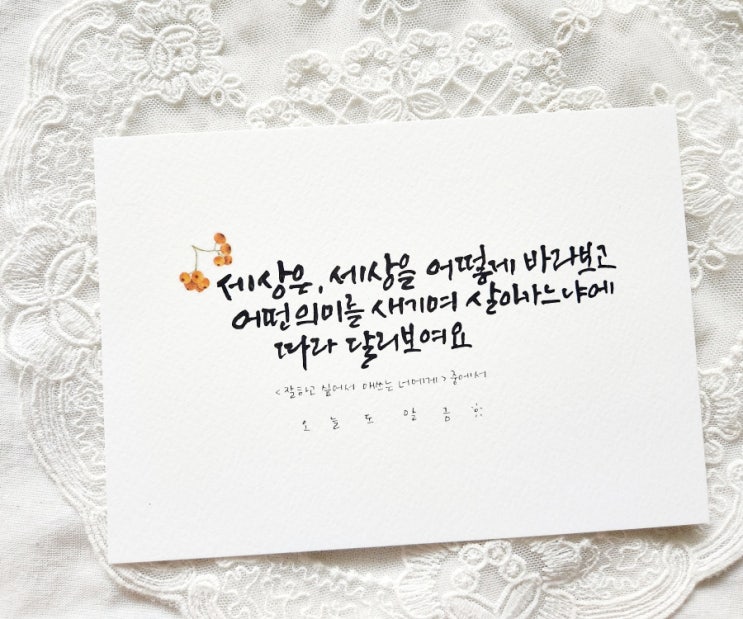 세상은, 세상을 어떻게 바라보고
어떤 의미를 새기며 살아가느냐에
따라 달리보여요
<잘하고 싶어서 애쓰는 너에게> 중에서
오늘도 말금